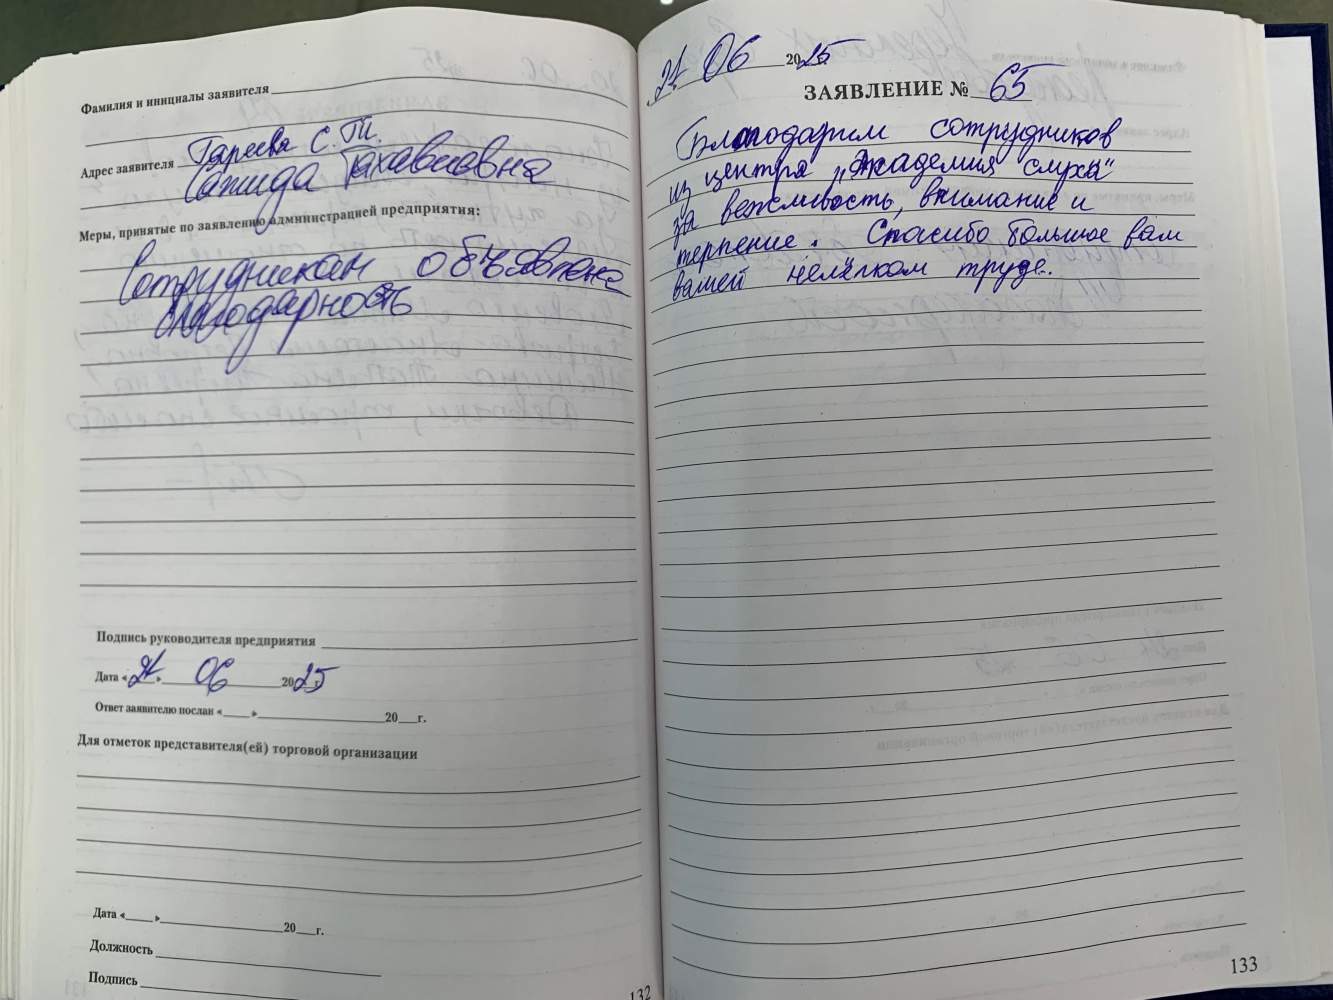 Фамилия и инициалы заявителя
Гареева С. Т.
Адрес заявителя
Сагида
Меры, принятые по заявлению администрацией предприятия:
Сотрудникам объявлена
благодарность
Подпись руководителя предприятия
Дата « » 06 2025
Ответ заявителю послан « » 20 г.
Для отметок представителя(ей) торговой организации
Дата « » 20 г.
Должность
Подпись
132
06 2025
ЗАЯВЛЕНИЕ № 65
Благодарим сотрудников
из центра „Академия слуха"
за вежливость, внимание и
терпение. Спасибо большое вам
вашей нелёгком труде.
133